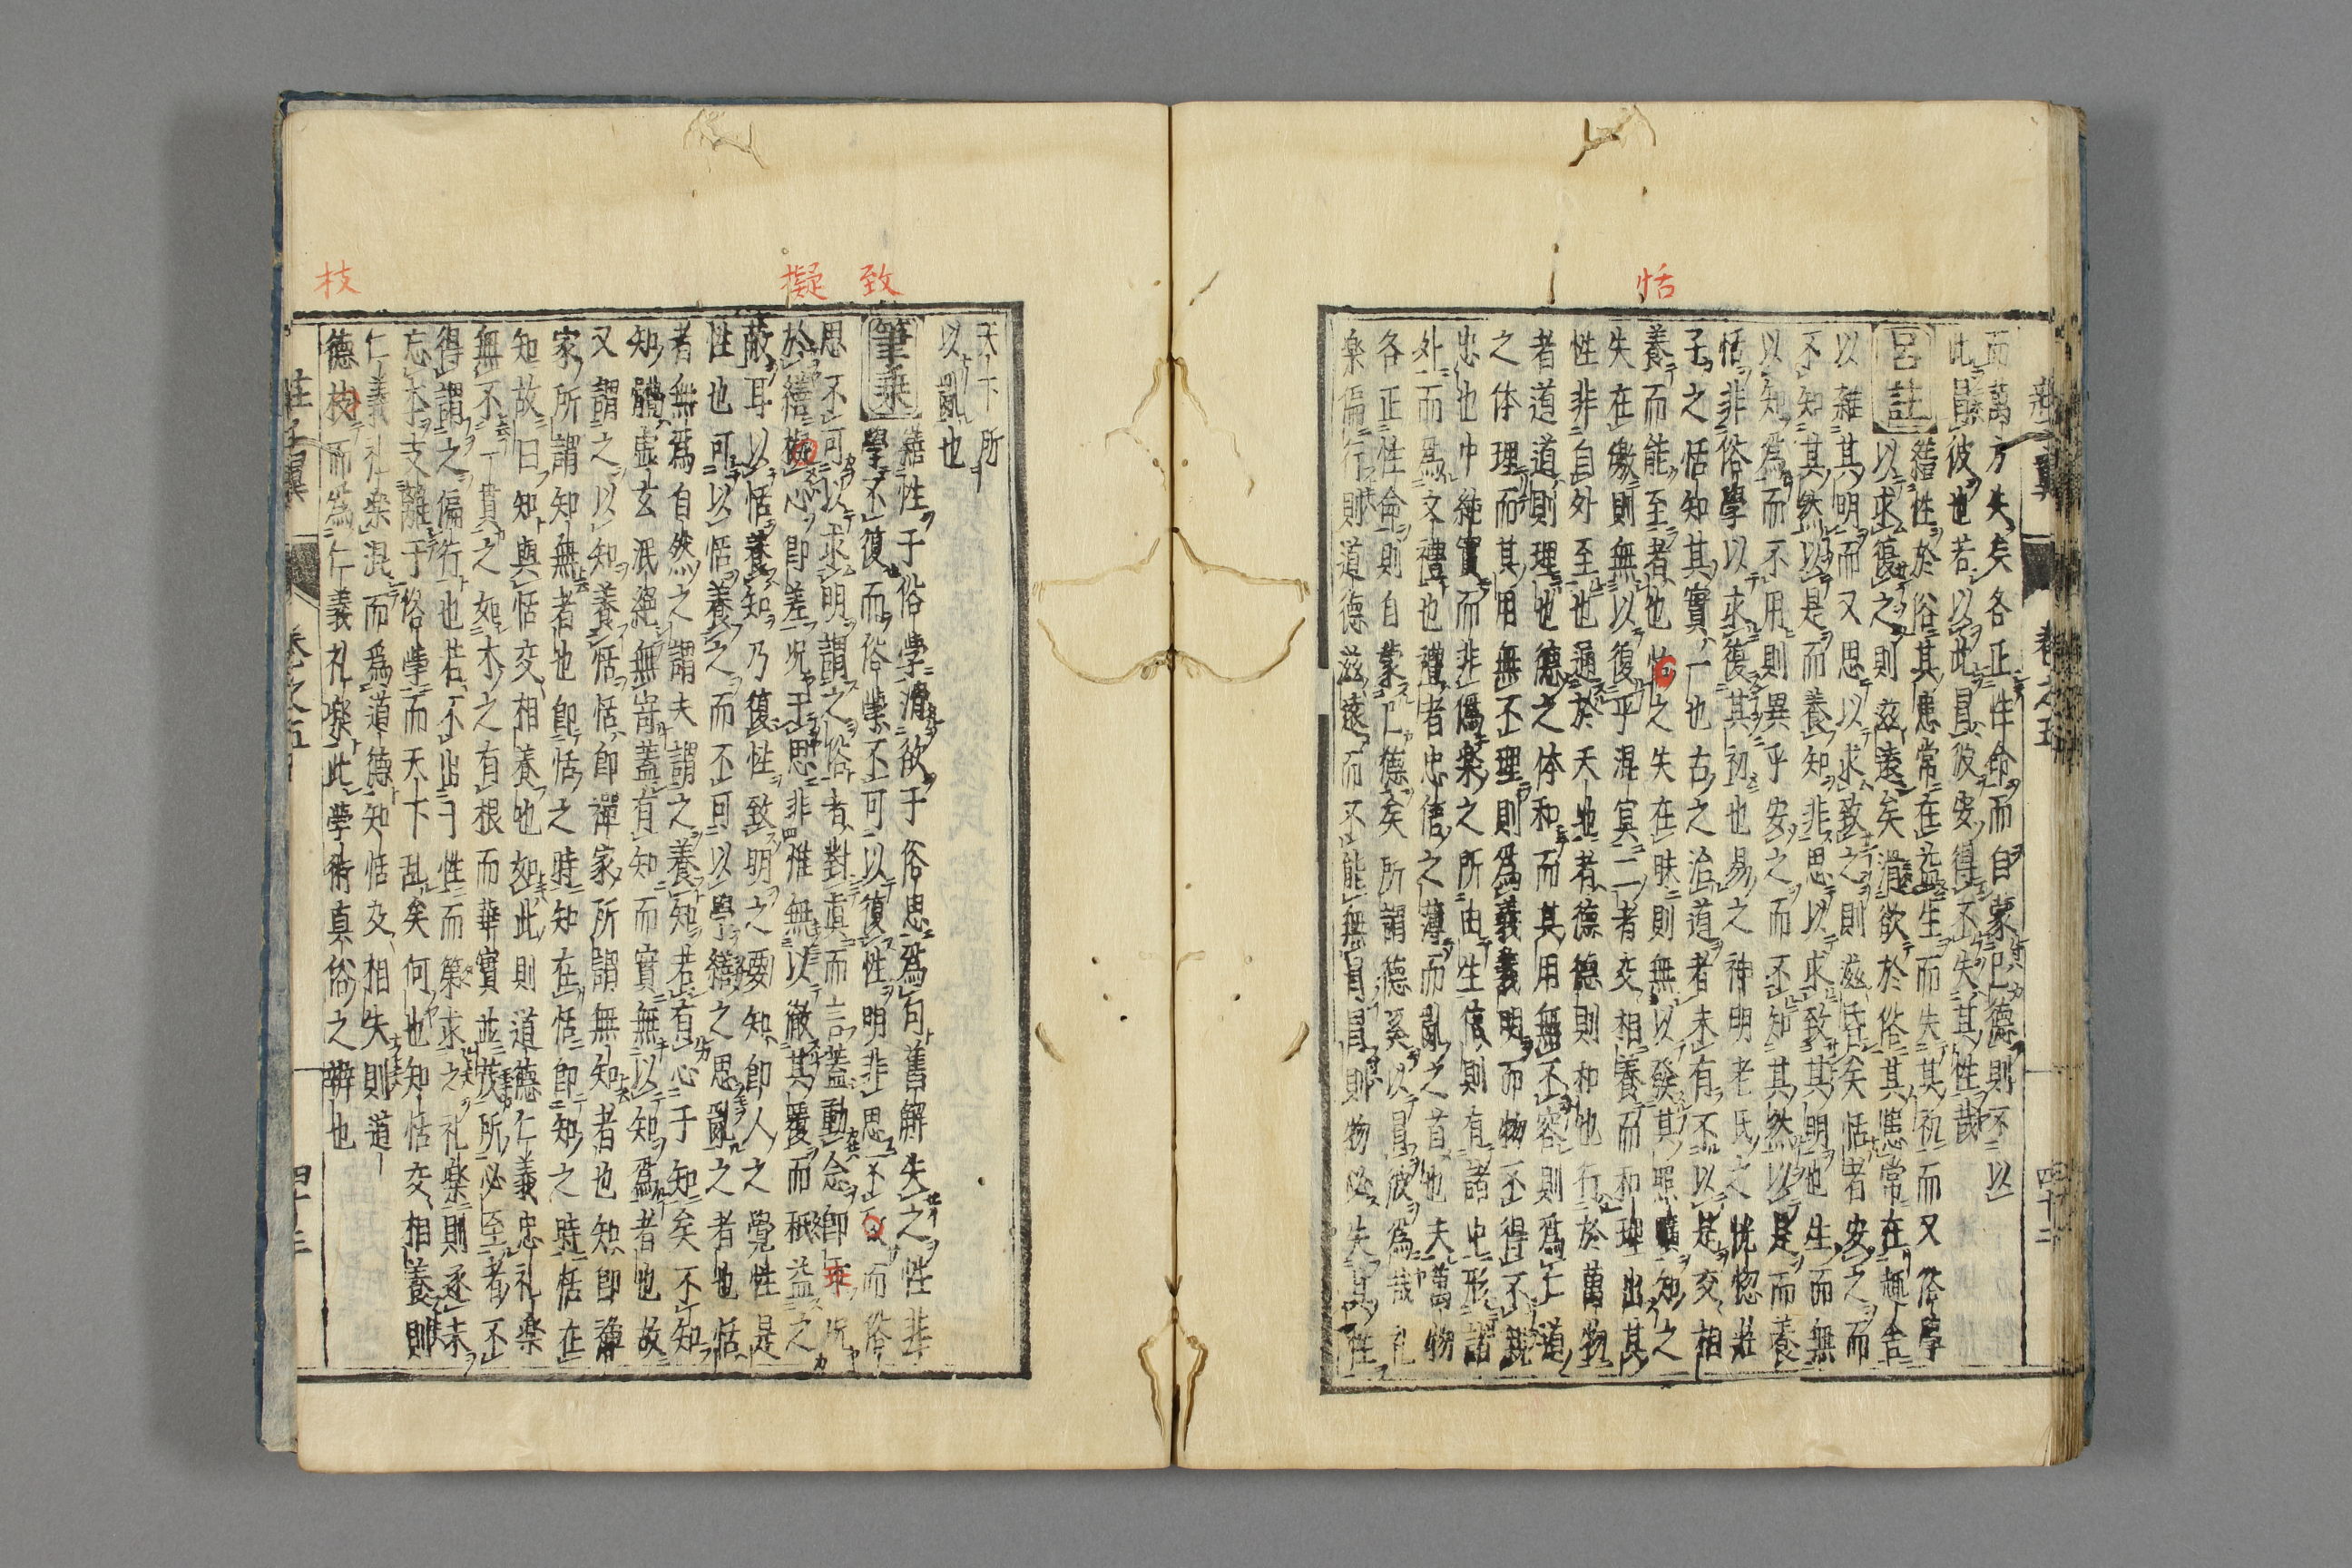 恬
而萬方失矣各正性命而自蒙己德則不以
此冒彼也若以此冒彼安得不失其性哉
呂註 繕性於俗其患常在益生而失其初而又俗學
以求復之則滋遠矣滑欲於俗其患常在趣舎
以雜其明而又思以求致之則滋昏矣恬者安之而
不知其然以是而養知非思以求致其明也生而無
以知爲而不用則異乎安之而不知其然以是而養
恬非俗學以求復其初也易之神明老氏之恍惚莊
子之恬知其實一也古之治道者未有不以是交相
養而能至者也恬之失在昧則無以發其照曠知之
失在皦則無以復乎混冥二者交相養而和理出其
性非自外至也通於天地者德德則和也行於萬物
者道道則理也德之体和而其用無不容則爲仁道
之体理而其用無不理則爲義義明而物不得不親
忠也中純實而非僞楽之所由生信則有諸中形諸
外而爲文禮也禮者忠信之薄而亂之首也夫萬物
各正性命則自蒙己德矣所謂德奚以冒彼爲哉礼
楽偏行則道德滋遠而不能無冒冒則物必失其性
莊子翼 卷之五 四十二
致
擬
枝
天下所
以亂也
筆乗 繕性于俗學滑欲于俗思爲句舊解失之性非
學不復而俗學不可以復性明非思不致而俗
思不可以求明謂之俗者對真而言蓋動念即乖况
於繕擬心即差况于思非惟無以徹其覆而秪益之
蔽耳以恬養知乃復性致明之要知即人之覺性是
性也可以恬養之而不可以學繕之思亂之者也恬
者無爲自然之謂夫謂之養知若有心于知矣不知
知體虚玄泯絕無寄蓋有知而實無以知爲者也故
又謂之以知養恬恬即禪家所謂無知者也知即禪
家所謂知無者也即恬之時知在恬即知之時恬在
知故曰知與恬交相養也如此則道德仁義忠礼楽
無不一貫之如木之有根而華實並茂所必至者不
得謂之偏行也若不出于性而第求之礼楽則逐末
忘本支離于俗學而天下乱矣何也知恬交相養則
仁義礼楽混而爲道德知恬交相失則道
德枝而爲仁義礼楽此學術真俗之辨也
莊子翼 卷之五 四十三